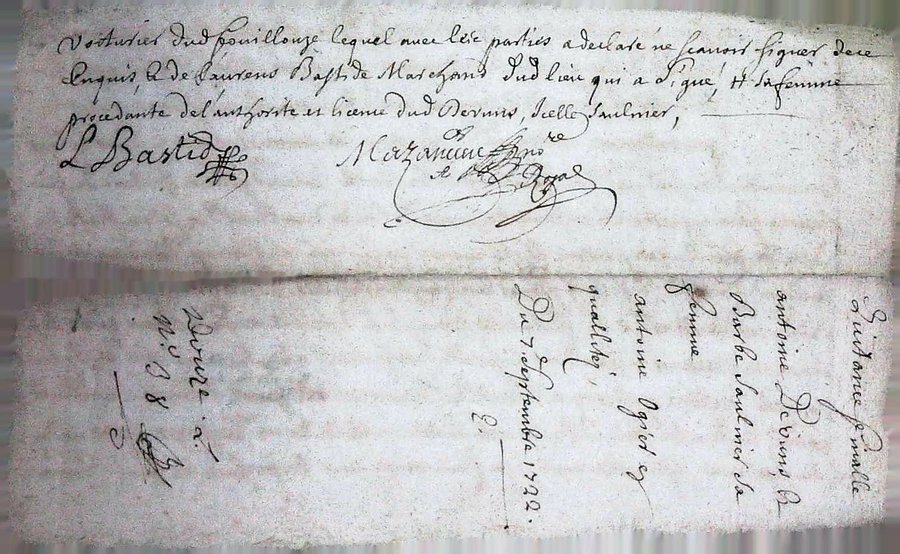 Voiturier dud fouillouze lequel avec lesd parties a declaré ne scavoir signer de ce
Enquis, & de Laurens Bastide Marchand dud lieu qui a signé, # sa femme
procedante de l'authorité et licence dud Deruns, Icelle Saulnier,
L Bastide
Mazancieu no.re
Royal
Quitance
antoine Deruns &
Barbe Saulnier sa
femme
antoine Ogier et
quallitez,
Du 7. Septembre 1722.
Douze
N.o 98